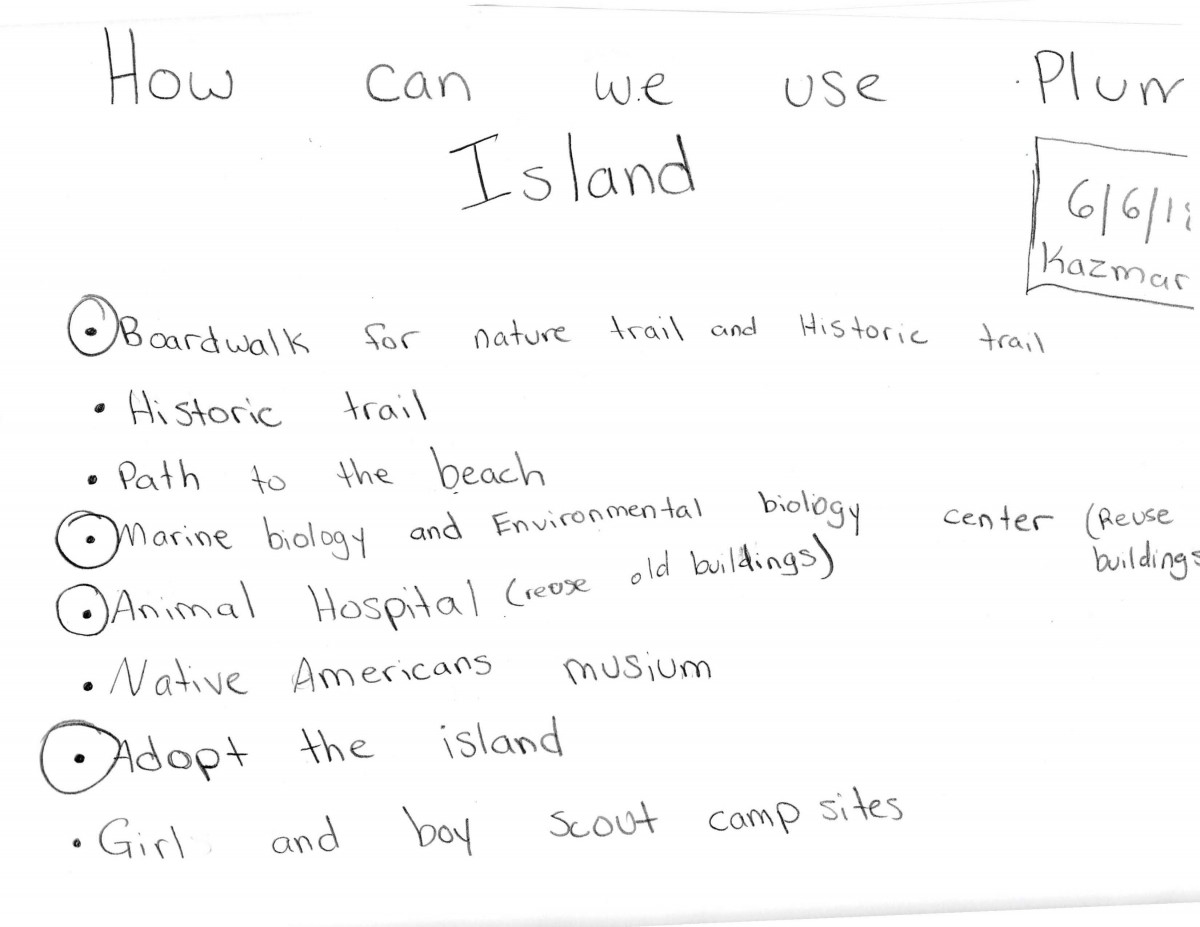 How can we use Plum
Island
6/6/18
Kazmar
Boardwalk for nature trail and Historic trail
• Historic trail
• Path to the beach
Marine biology and Environmental biology center (Reuse
buildings
Animal Hospital (reuse old buildings)
• Native Americans musium
Adopt the island
• Girl and boy scout camp sites